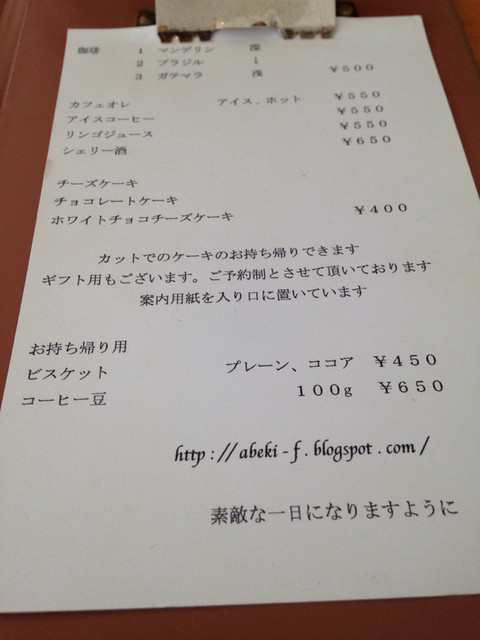 珈琲 1 マンデリン 深
2 ブラジル ↓
3 ガテマラ 浅 ¥500
カフェオレ アイス.ホット ¥550
アイスコーヒー ¥550
リンゴジュース ¥550
シェリー酒 ¥650
チーズケーキ
チョコレートケーキ
ホワイトチョコチーズケーキ ¥400
カットでのケーキのお持ち帰りできます
ギフト用もございます。ご予約制とさせて頂いております
案内用紙を入り口に置いています
お持ち帰り用
ビスケット プレーン、ココア ¥450
コーヒー豆 100g ¥650
http://abeki-f.blogspot.com/
素敵な一日になりますように